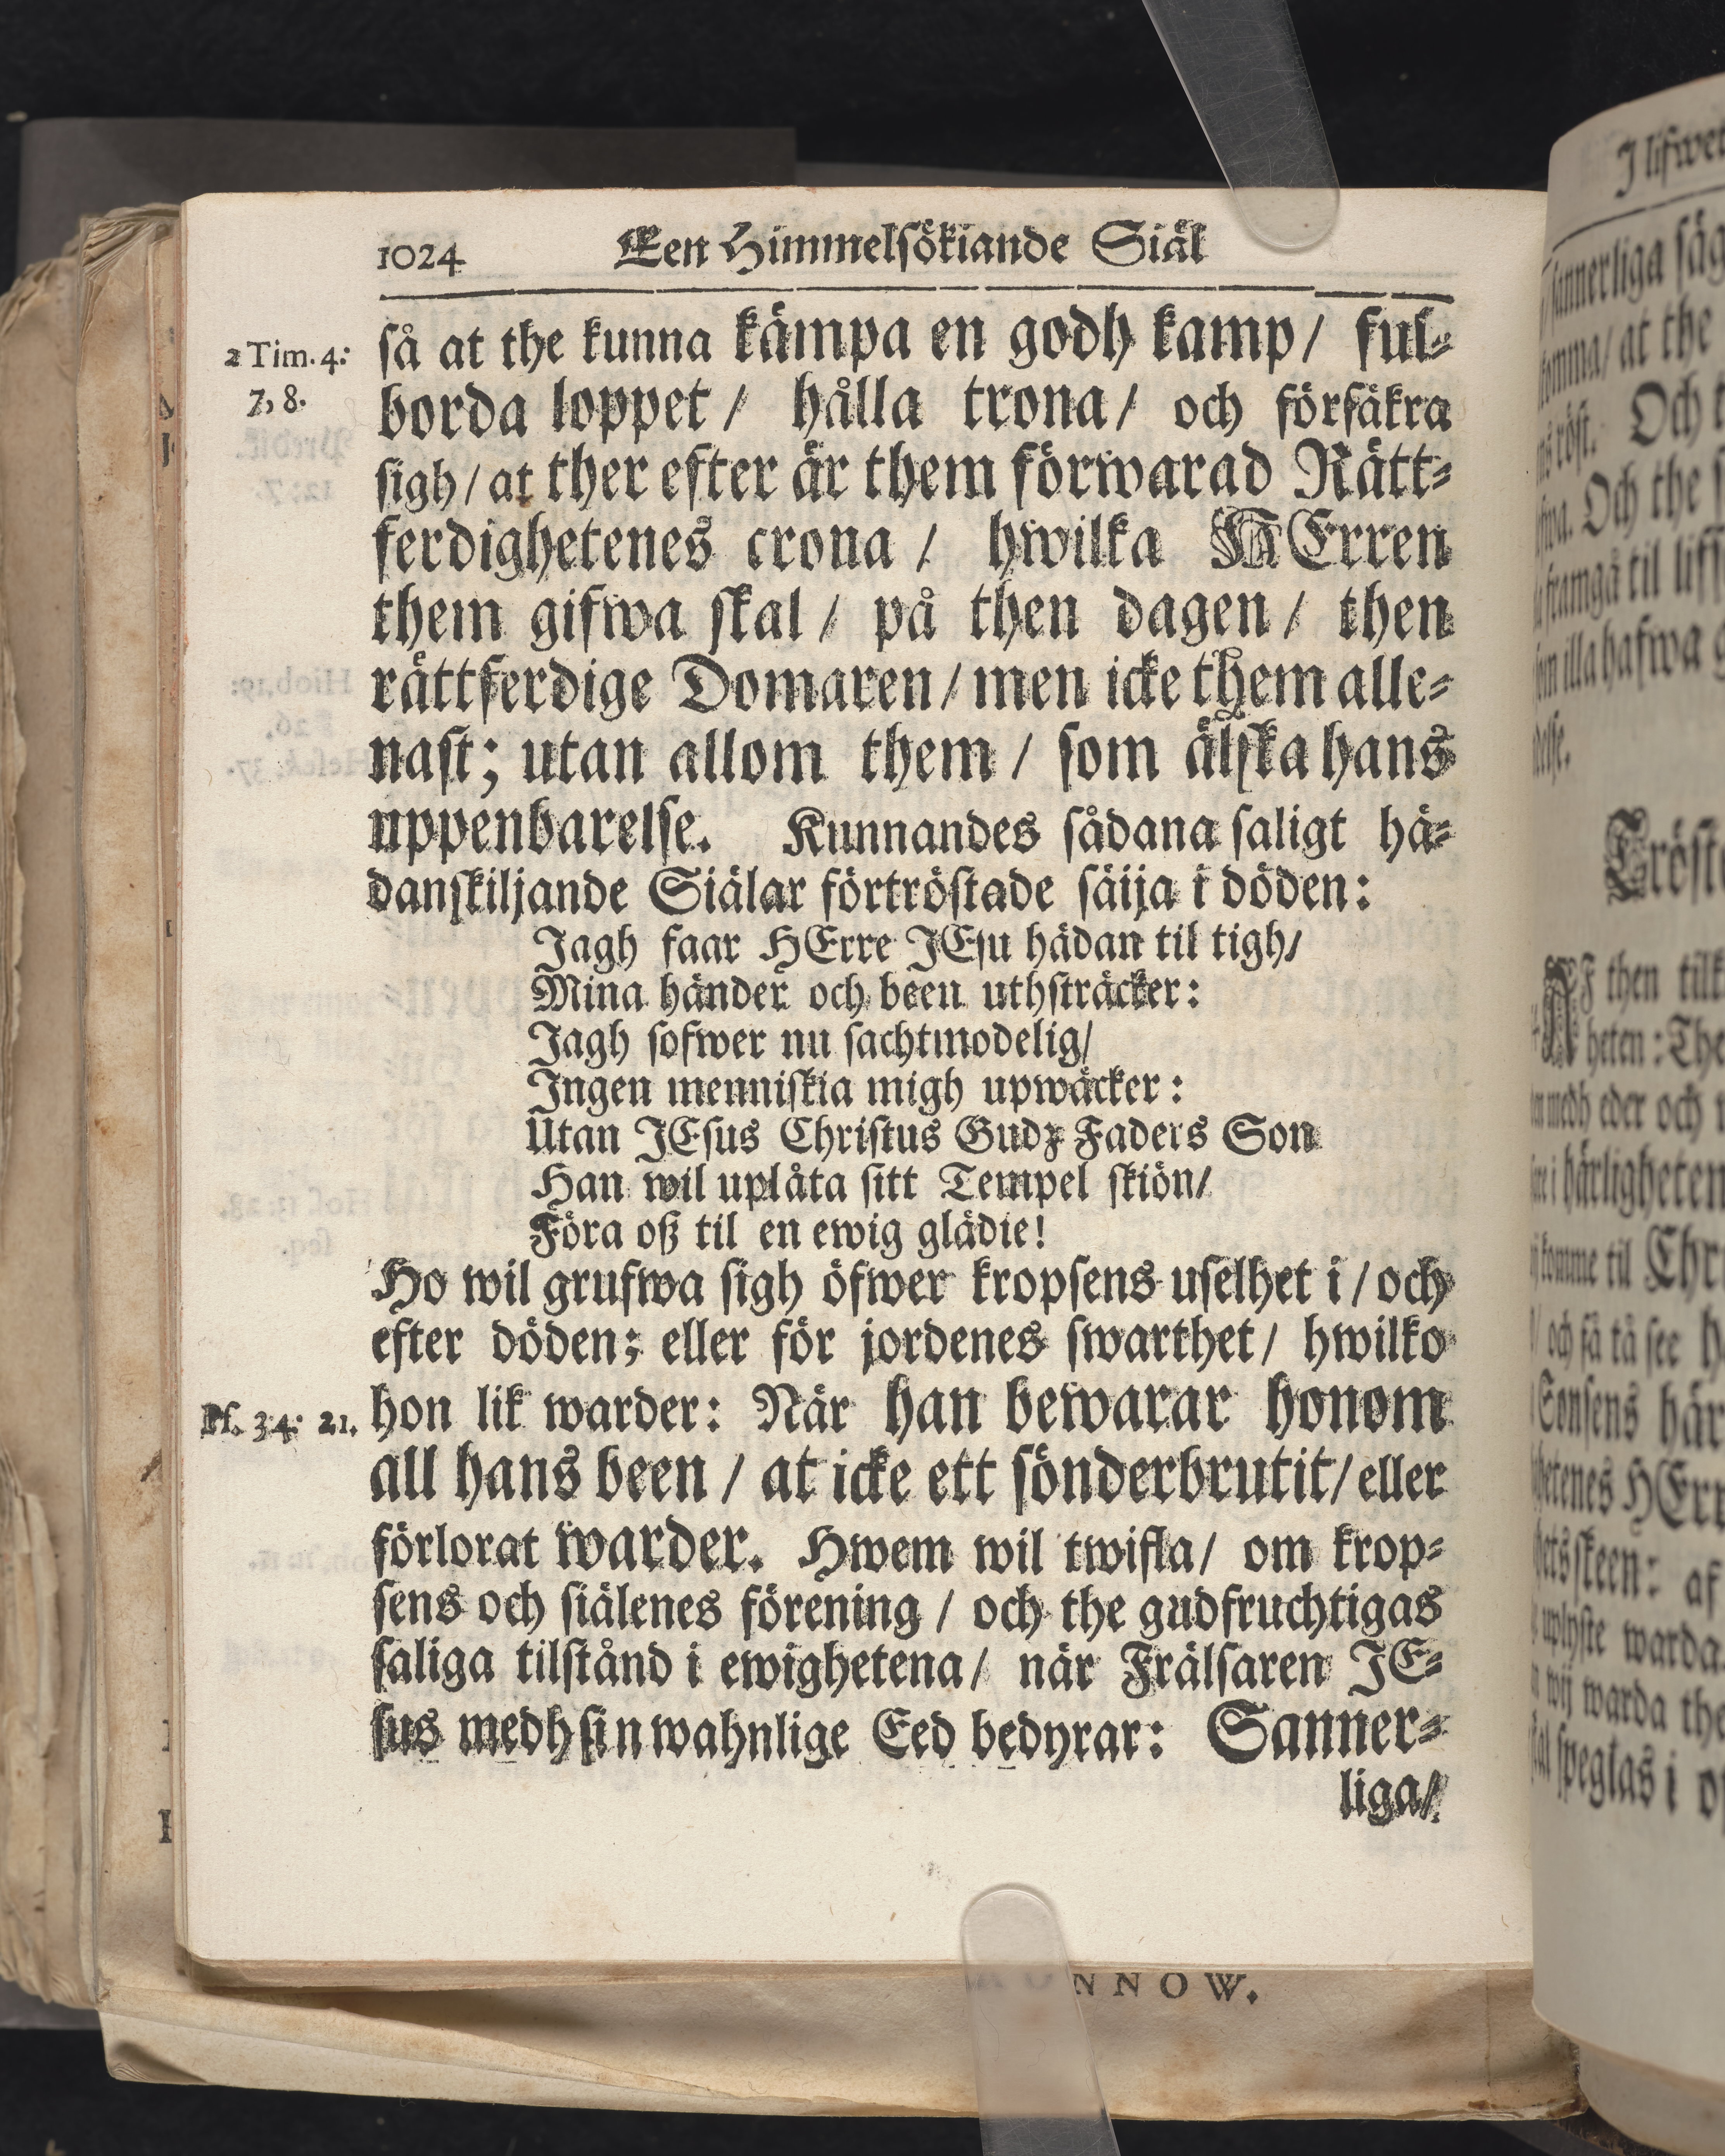 1024 Een Himmelsökiande Siäl
2 Tim. 4:
7, 8.
så at the kunna kämpa en godh kamp/ ful-
borda loppet / hålla trona/ och försäkra
sigh / at ther efter är them förwarad Rätt-
ferdighetenes crona / hwilka HErren
them gifwa skal / på then dagen / then
rättferdige Domaren / men icke them alle-
nast; utan allom them / som älska hans
uppenbarelse. Kunnandes sådana saligt hä-
danskiljande Siälar förtröstade säija i döden:
Jagh faar HErre JEsu hädan til tigh/
Mina händer och been uthsträcker:
Jagh sofwer nu sachtmodelig/
Ingen menniskia migh upwäcker:
Utan JEsus Christus Gudz Faders Son
Han wil uplåta sitt Tempel skiön/
Föra oß til en ewig glädie!
Ho wil grufwa sigh öfwer kropsens uselhet i / och
efter döden; eller för jordenes swarthet/ hwilko
Ps. 34: 21.
hon lik warder: När han bewarar honom
all hans been / at icke ett sönderbrutit/ eller
förlorat warder. Hwem wil twifla/ om krop-
sens och siälenes förening / och the gudfruchtigas
saliga tilstånd i ewighetena/ när Frälsaren JE-
sus medh sin wahnlige Eed bedyrar: Sanner-
liga/
NNOW.
J lifwet
sannerliga säg
komma/ at the
röst. Och t
Och the s
framgå til liff
illa hafwa g
Tröst
AF then tilk
heten: The
medh eder och
härligheten
komme til Chr
och få tå see h
Sonsens här
hetenes HErr
skeen: af
uplyste warda.
wij warda the
speglas i